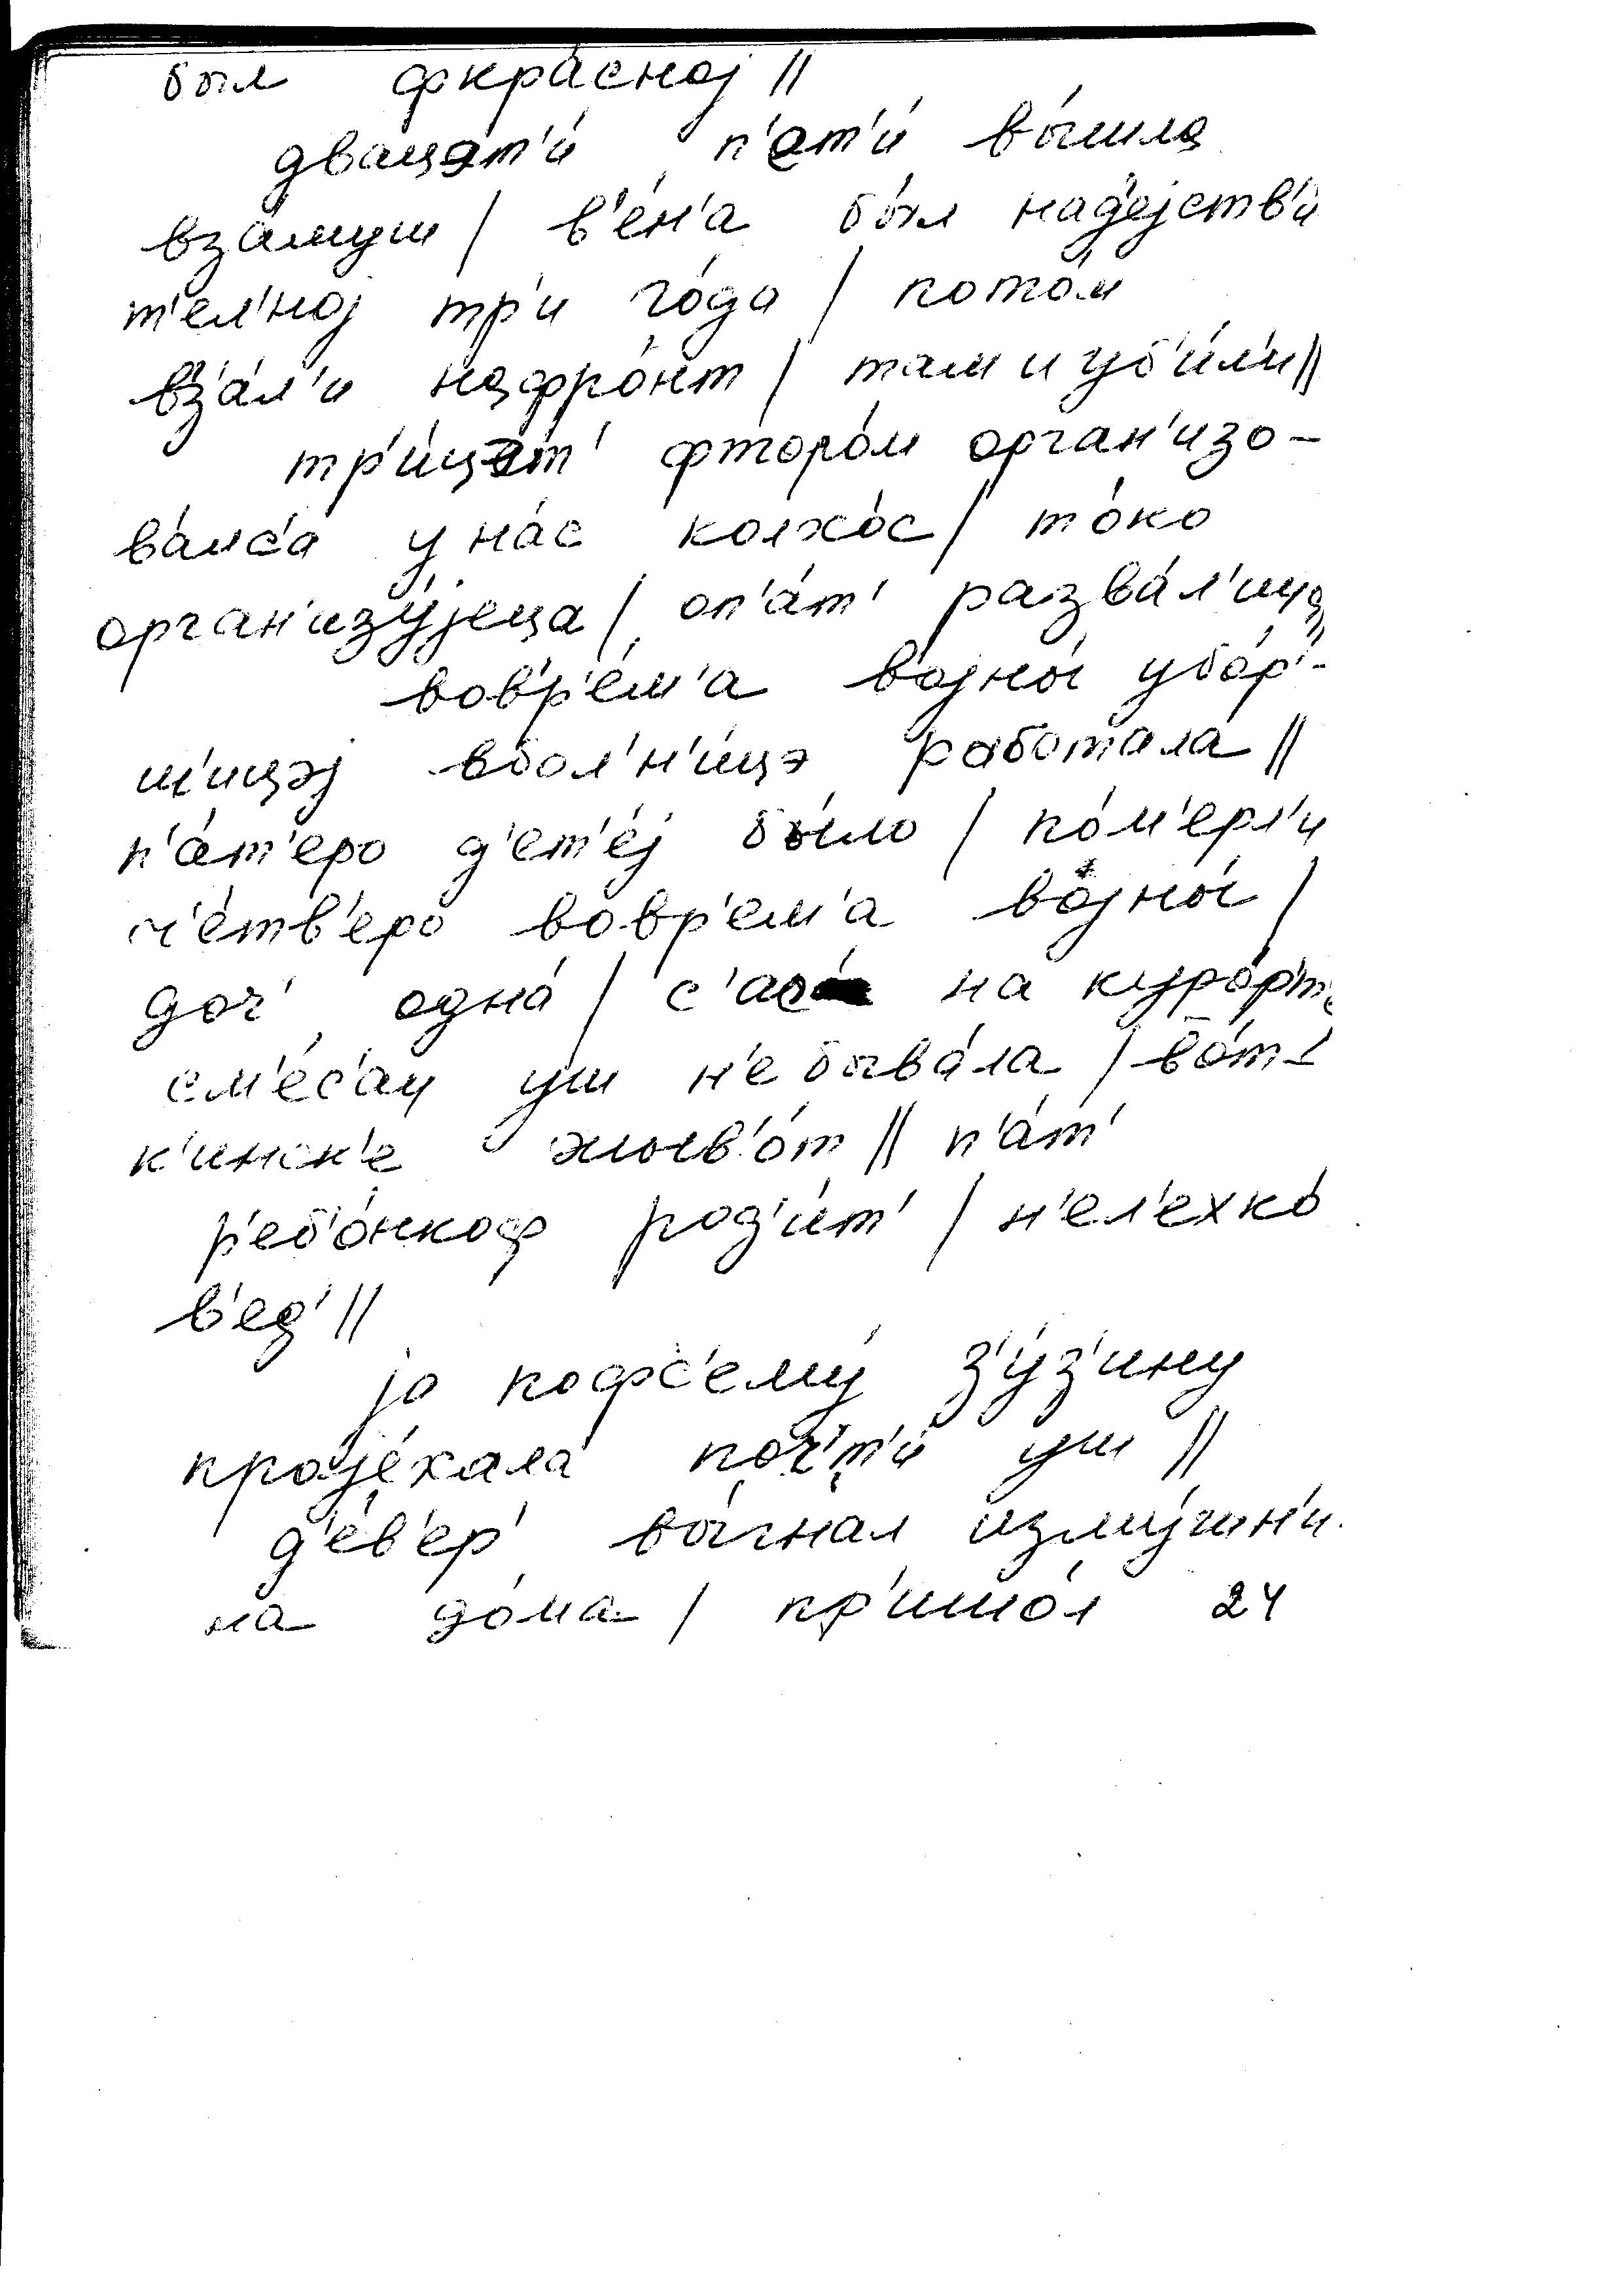 был фкра́сној //
двацэт'и́ п'ет'и́ вы́шла
вза́муш / в'е́н'а был над'ејств'и́
т'ел'ној тр'и го́да / пото́м
вз'а́л'и нафро́нт / там и уб'и́л'и //
тр'и́цэт' фторо́м орган'изо-
ва́лс'а у на́с колхо́с / то́ко
орган'изу́јеца / оп'а́т' разва́л'ица //
вовр'е́м'а војны́ убо́р'-
ш'ицэј вбол'н'и́цэ рабо́тала //
п'а́т'еро д'ет'е́ј бы́ло / по́м'ерл'и
ч'е́тв'еро вовр'е́м'а војны́ /
доч' одна́ / с'ас на куро́рт'е
см'е́с'ац уш н'е быва́ла / во́т-
к'инск'е жыв'о́т // п'а́т'
р'еб'о́нкоф род'и́т' / н'ел'ехко́
в'ед' //
ја кофс'ему́ з'у́з'ину
прој'е́хала поч'т'и́ уш //
д'е́в'ер' вы́гнал изму́жн'и
на до́ма / пр'ишо́л 24